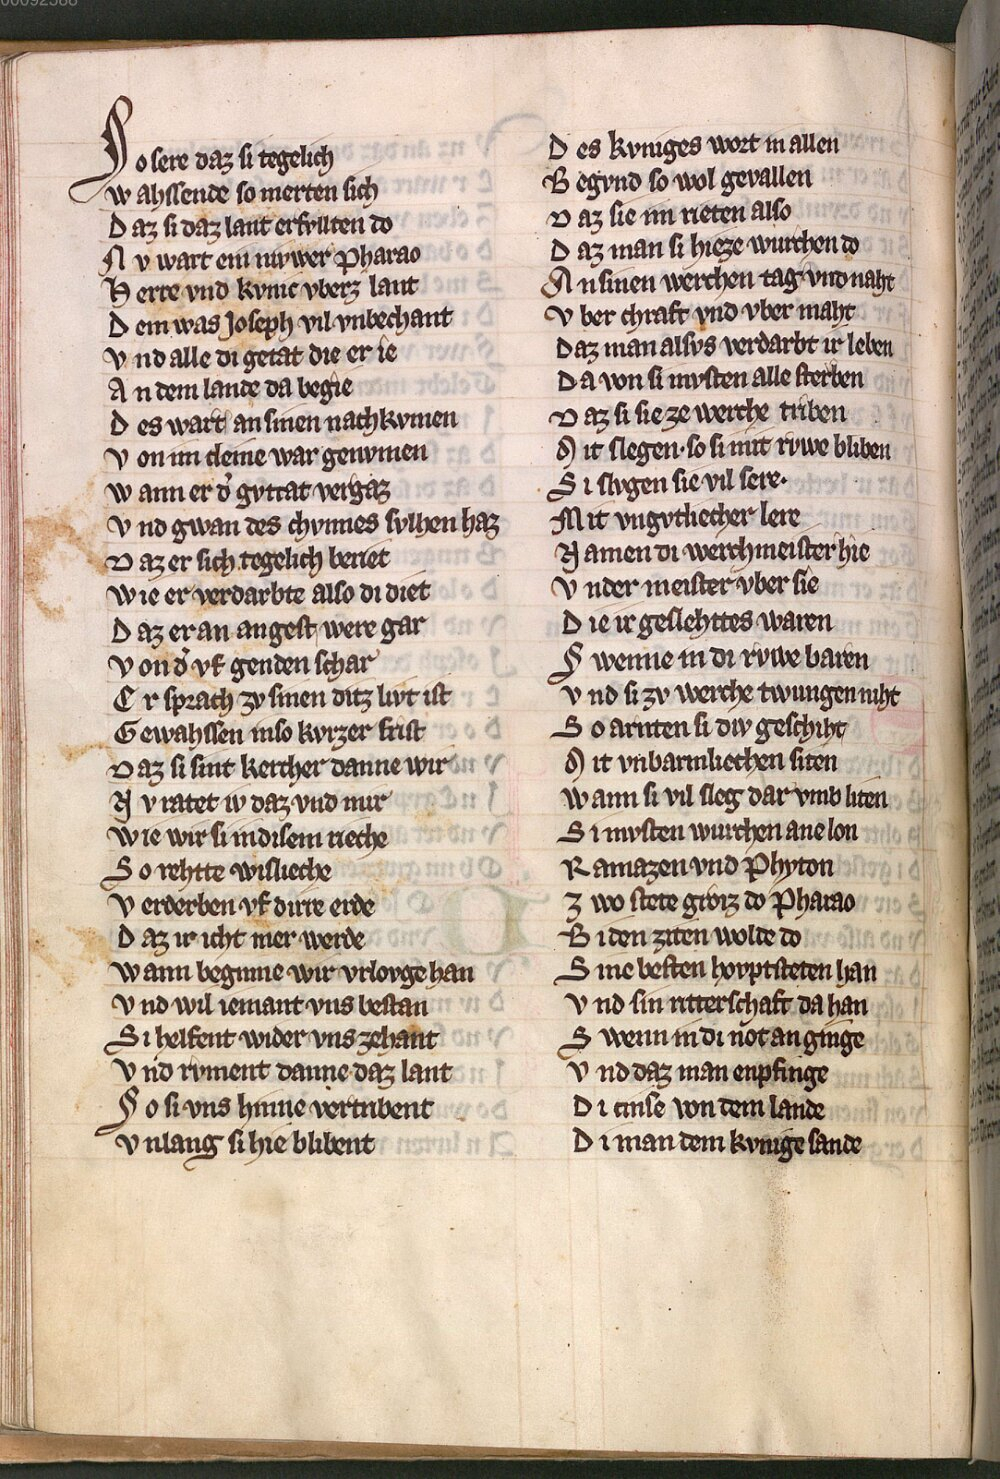 00092588
So sere daz si tegelich
Wahssende so merten sich
Daz si daz lant erfvllten do
Nv wart ein nvwer Pharao
Herre vnd kvnic vberz lant
Dem was Joseph vil vnbechant
Vnd alle di getat die er ie
An dem lande da begie
Des wart an sinen nachkvmen
Von im cleine war genvmen
Wann er d̓ gvttat vergaz
Vnd gwan des chvnnes svlhen haz
Daz er sich tegelich beriet
Wie er verdarbte also di diet
Daz er an angest were gar
Von d̓ vf genden schar
Er sprach zv sinen ditz livt ist
Gewahssen inso kvrzer frist
Daz si sint kercher danne wir
Nv ratet iv daz vnd mir
Wie wir si in disem rieche
So rehtte wislieche
Verderben vf dirre erde
Daz ir icht mer werde
Wann beginne wir vrlovge han
Vnd wil iemant vns bestan
Si helfent wider vns zehant
Vnd rvment danne daz lant
So si vns hinne vertribent
Vnlang si hie blibent
Des kvniges wort in allen
Begvnd so wol gevallen
Daz sie im rieten also
Daz man si hieze wurchen do
An sinen werchen tag vnd naht
Vber chraft vnd vber maht
Daz man alsvs verdarbt ir leben
Da von si mvsten alle sterben
Daz si sie ze werche triben
Mit slegen· so si mit rvwe bliben
Si slvgen sie vil sere·
Mit vngvtliecher lere
Namen di werchmeister hie
Vnder meister vber sie
Die ir geslehttes waren
Swenne in di rvwe baren
Vnd si zv werche twungen niht
So arnten si div geschiht
Mit vnbarmliechen siten
Wann si vil sleg dar vmb liten
Si mvsten wurchen ane lon
Ramazen vnd Phyton
Zwo stete
 do Pharao
Bi den ziten wolde do
Sine besten hovptsteten han
Vnd sin ritterschaft da han
Swenn in di not an ginge
Vnd daz man enpfinge
Di cinse von dem lande
Di man dem kvnige sande